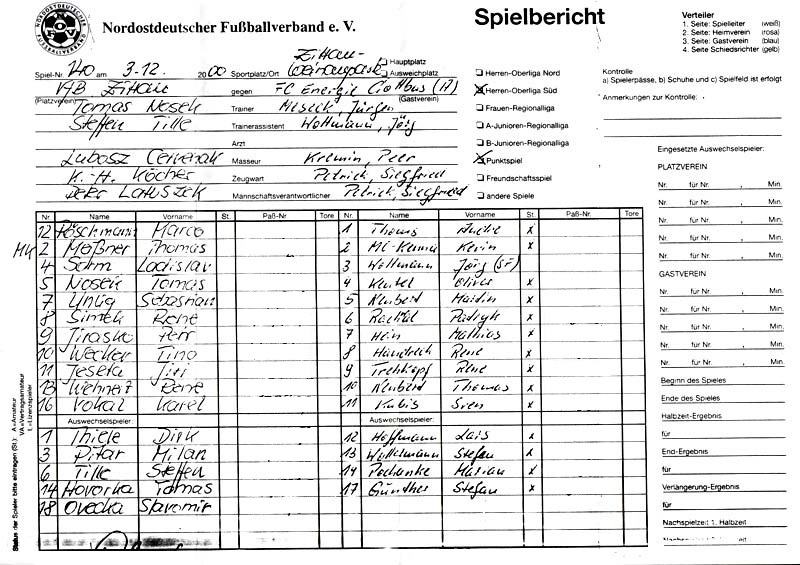 NORDOSTDEUTSCHER FUSSBALLVERBAND
Nordostdeutscher Fußballverband e. V.
Spielbericht
Verteiler
1. Seite: Spielleiter (weiß)
2. Seite: Heimverein (rosa)
3. Seite: Gastverein (blau)
4. Seite Schiedsrichter (gelb)
Spiel-Nr. 140 am 3.12. 2000 Sportplatz/Ort Zittau- Weinaupark Hauptplatz Ausweichplatz
VfB Zittau gegen FC Energie Cottbus (A)
(Platzverein) (Gastverein)
Tomas Nosek Trainer Jürgen
Steffen Tille Trainerassistent Woltmann, Jörg
Arzt
Lubosz Cervenak Masseur Kremin, Peer
K.-H. Köcher Zeugwart Petrick, Siegfried
Peter Latuszek Mannschaftsverantwortlicher Petrick, Siegfried
Herren-Oberliga Nord
Herren-Oberliga Süd
Frauen-Regionalliga
A-Junioren-Regionalliga
B-Junioren-Regionalliga
Punktspiel
Freundschaftsspiel
andere Spiele
Kontrolle
a) Spielerpässe, b) Schuhe und c) Spielfeld ist erfolgt
Anmerkungen zur Kontrolle:
Nr. Name Vorname St. Paß-Nr. Tore Nr. Name Vorname St. Paß-Nr. Tore
12 Pöschmann Marco 1 Thoms André x
MK 2 Meßner Thomas 2 Mc-Kenna Kevin x
4 Ladislav 3 Woltmann Jörg (SF)
5 Nosek Tomas 4 Oliver x
7 Uhlig Sebastian 5 Neubert Martin x
8 Simek René 6 Patryk x
9 Jirasko Petr 7 Hein Mathias x
10 Wecker Tino 8 René x
11 Jeseta Jiri 9 Trehkopf René x
13 Wehnert René 10 Neubert Thomas x
16 Vokal Karel 11 Kubis Sven x
Auswechselspieler: Auswechselspieler:
1 Thiele Dirk 12 Hoffmann Lars x
3 Pitar Milan 13 Stefan x
6 Tille Steffen 14 Marian x
14 Hovorka Tomas 17 Günther Stefan x
18 Ovecka Slavomir
Status der Spieler bitte eintragen (St.): A=Amateur
VA=Vertragsamateur
L=Lizenzspieler
Eingesetzte Auswechselspieler:
PLATZVEREIN
Nr. für Nr. , Min.
Nr. für Nr. , Min.
Nr. für Nr. , Min.
Nr. für Nr. , Min.
Nr. für Nr. , Min.
GASTVEREIN
Nr. für Nr. , Min.
Nr. für Nr. , Min.
Nr. für Nr. , Min.
Nr. für Nr. , Min.
Nr. für Nr. , Min.
Beginn des Spieles
Ende des Spieles
Halbzeit-Ergebnis
für
End-Ergebnis
für
Verlängerung-Ergebnis
für
Nachspielzeit: 1. Halbzeit